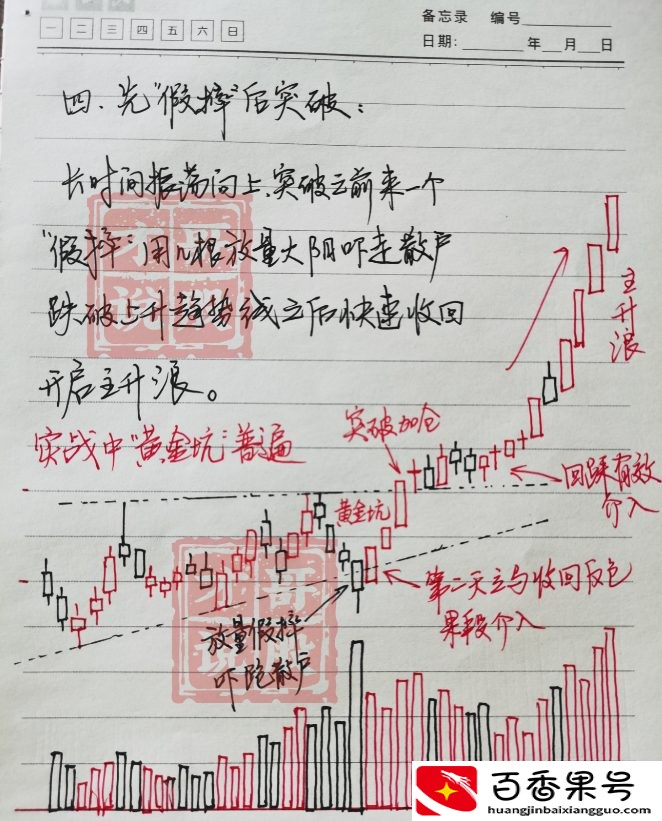 备忘录 编号
一 二 三 四 五 六 日
日期: 年 月 日
四、先"假摔"后突破:
长时间振荡向上,突破之前来一个
"假摔"用几根放量大阴吓走散户
跌破上升趋势线之后快速收回
开启主升浪。
实战中"黄金坑"普遍
主升浪
突破加仓
回踩有效
介入
黄金坑
第二天立与收回反包
果段介入
放量假摔
吓跑散户
百香果号
huangjinbaixiangguo.com